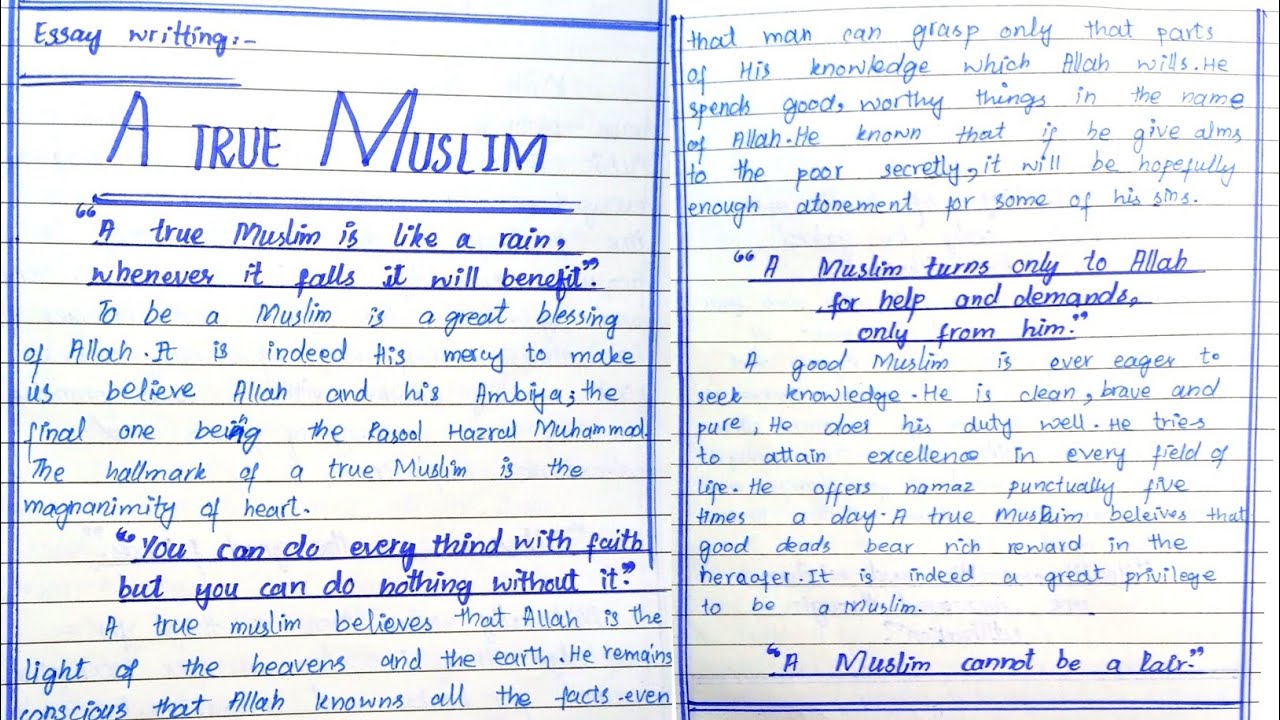 Essay writting:-
A TRUE MUSLIM
“A true Muslim is like a rain,
whenever it falls it will benefit”.
To be a Muslim is a great blessing
of Allah. It is indeed His mercy to make
us believe Allah and his Ambiya, the
final one being the Rasool Hazrat Muhammad.
The hallmark of a true Muslim is the
magnanimity of heart.
“You can do every thind with faith
but you can do nothing without it”.
A true muslim believes that Allah is the
light of the heavens and the earth. He remains
conscious that Allah knowns all the facts. even
that man can grasp only that parts
of His knowledge which Allah wills. He
spends good, worthy things in the name
of Allah. He known that if he give alms
to the poor secretly, it will be hopefully
enough atonement for some of his sins.
“A Muslim turns only to Allah
for help and demands,
only from him.”
A good Muslim is ever eager to
seek knowledge. He is clean, brave and
pure, He does his duty well. He tries
to attain excellence in every field of
life. He offers namaz punctually five
times a day. A true Muslim beleives that
good deads bear rich reward in the
heraafer. It is indeed a great privilege
to be a Muslim.
“A Muslim cannot be a